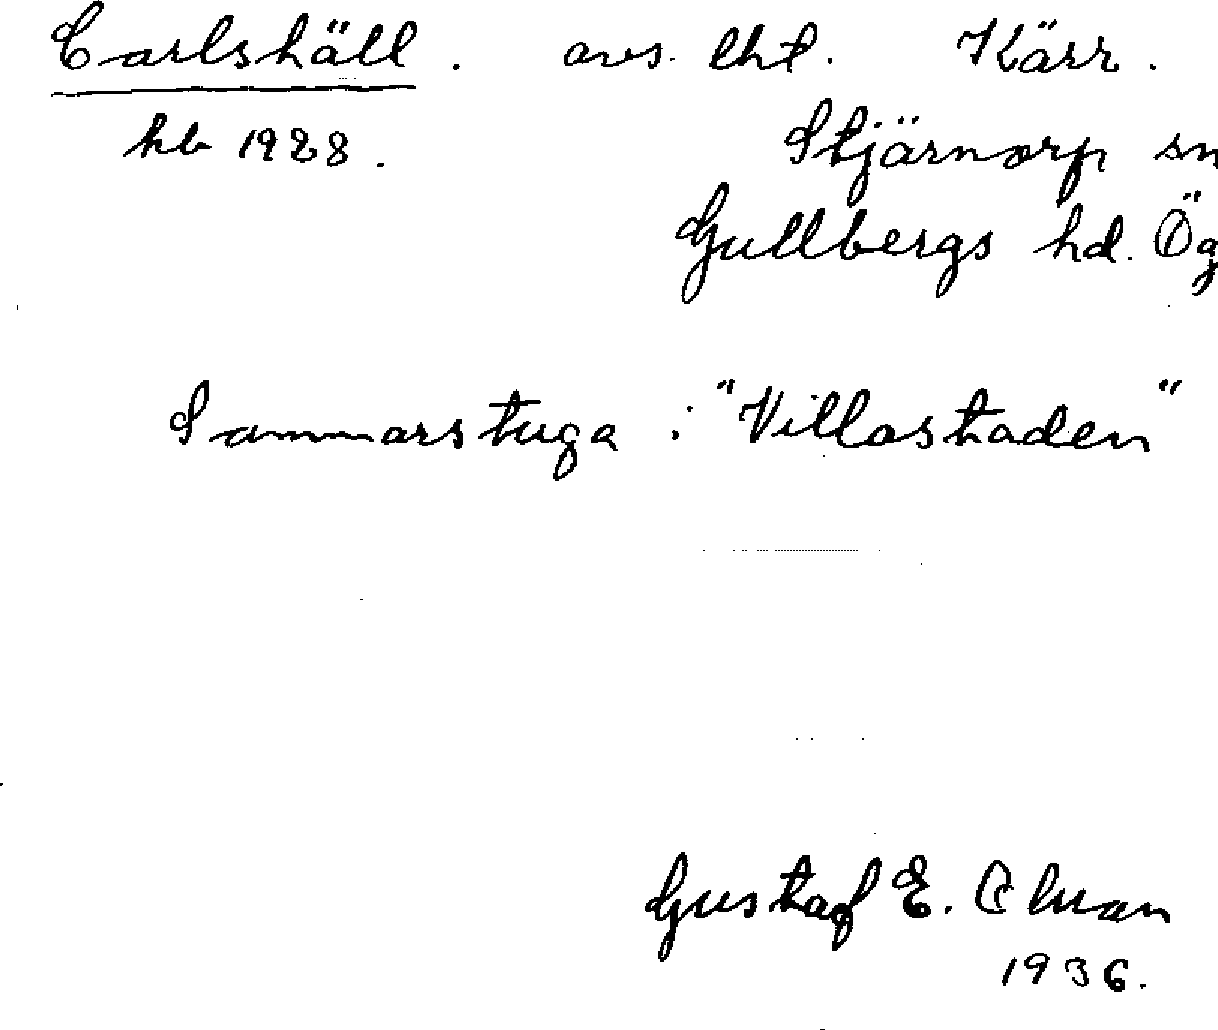 Carlshäll. avs. lht. Kärr.
hb 1928. Stjärnorp sn
Gullbergs hd. Ög
Sommarstuga i "Villastaden"
Gustaf E.
1936.